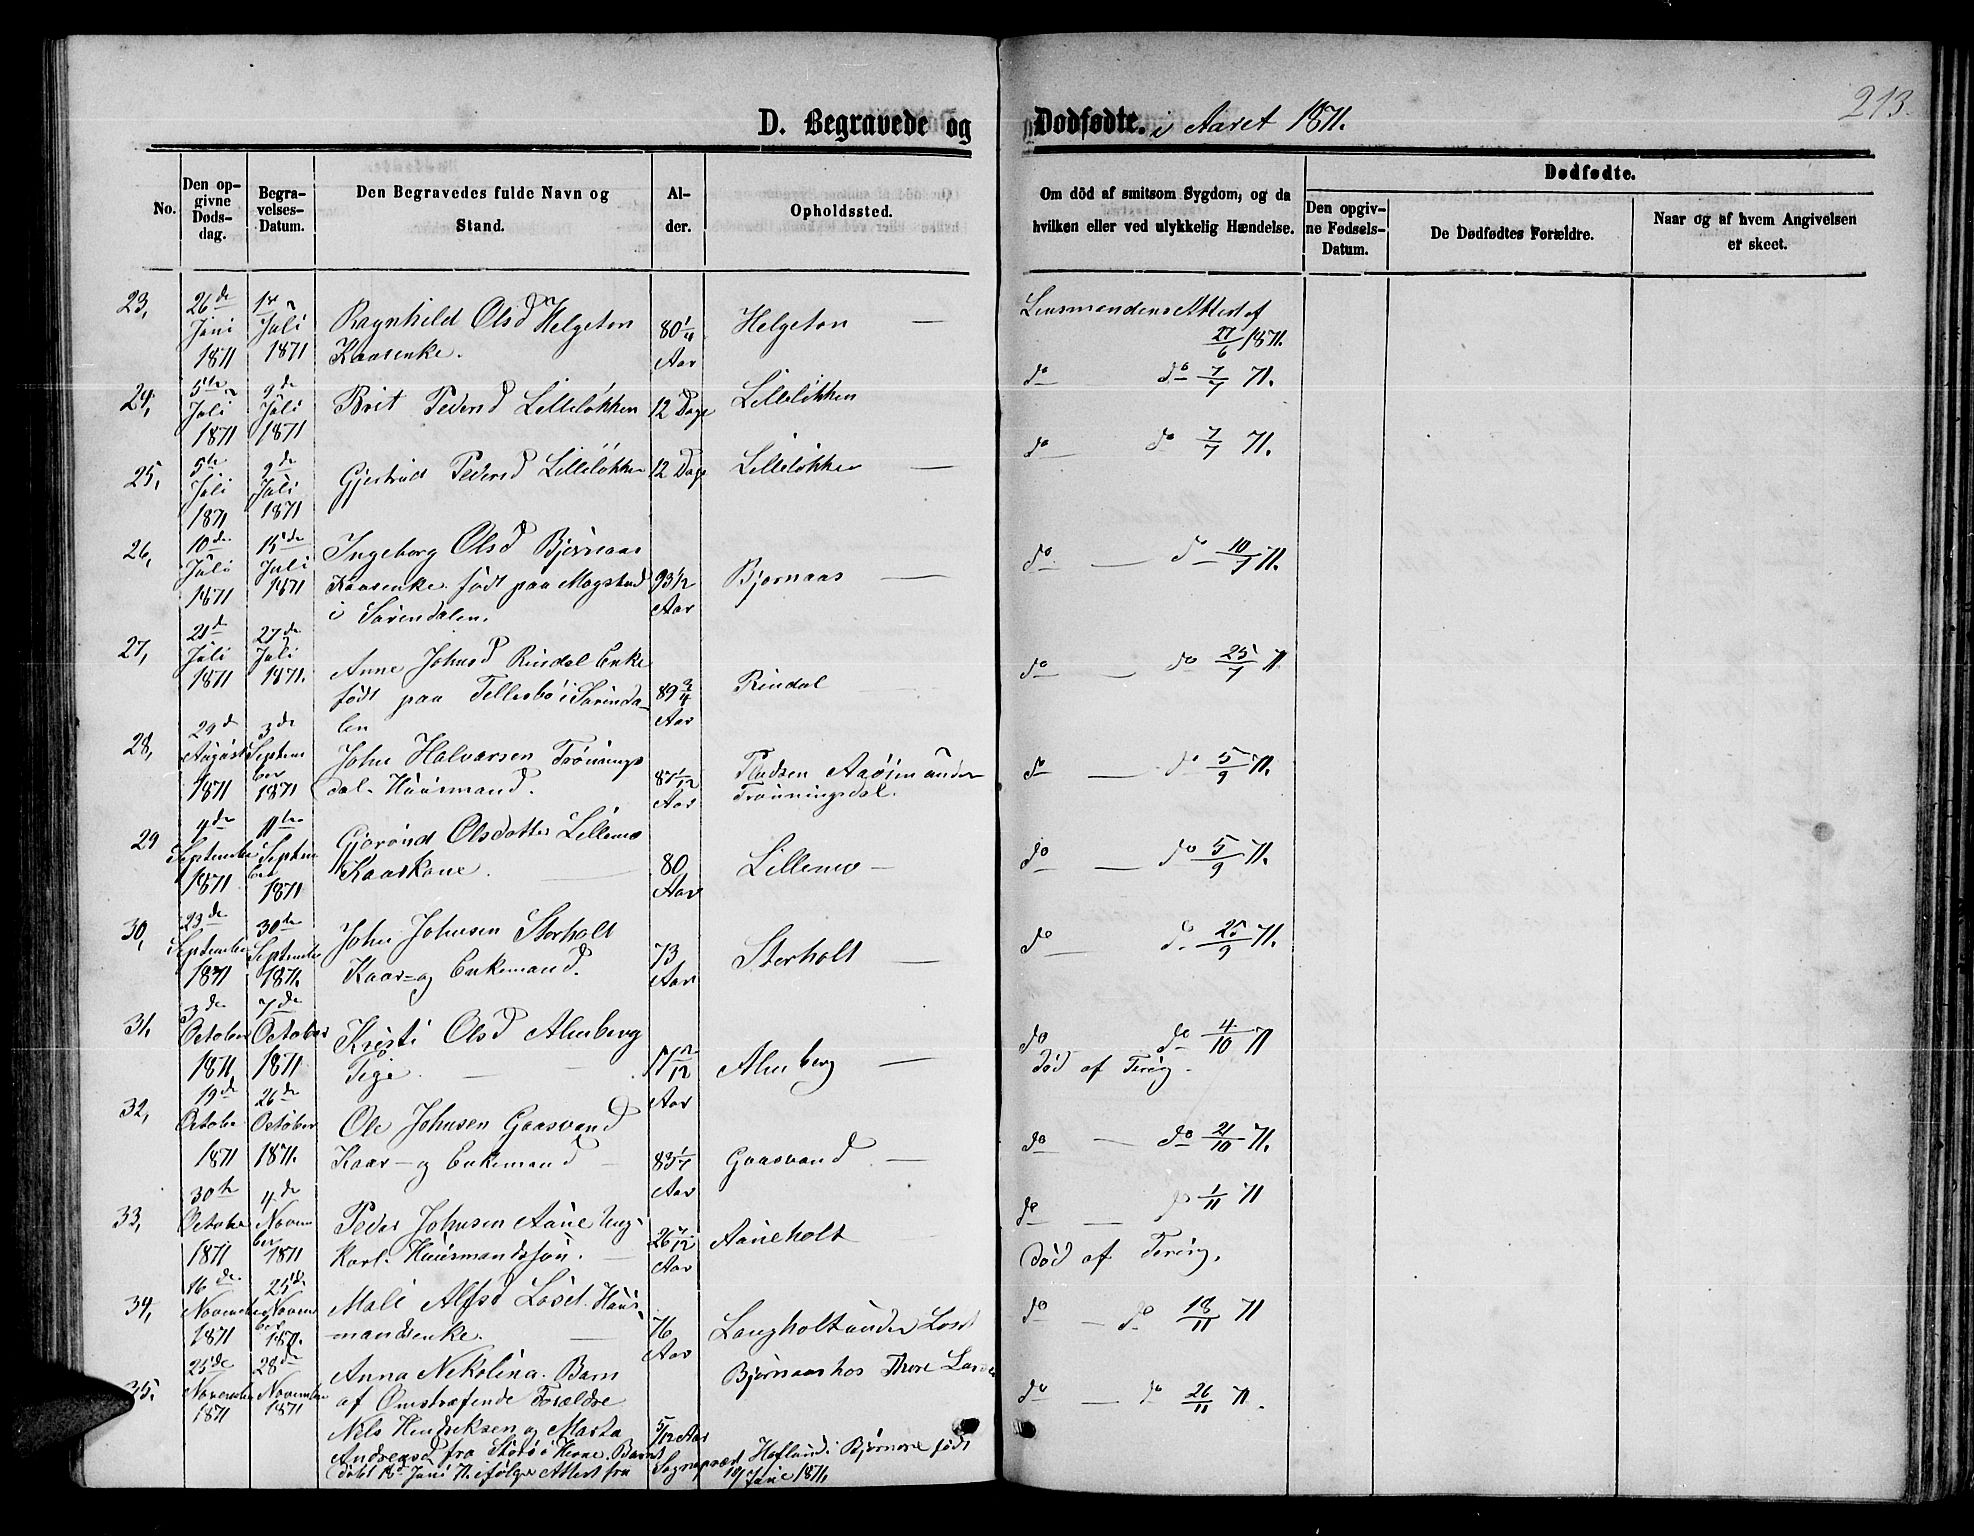 213.
D. Begravede og Dødfødte. i Aaret 1871.
No.
Den opgivne Dødsdag.
Begravelses-Datum.
Den Begravedes fulde Navn og Stand.
Alder.
Opholdssted.
Om död af smitsom Sygdom, og da hvilken eller ved ulykkelig Hændelse.
Dødfødte.
Den opgivne Fødsels-Datum.
De Dødfødtes Forældre.
Naar og af hvem Angivelsen er skeet.
23, 26de Juni 1871 1ste Juli 1871 Ragnhild Olsd Helgeton Kaarenke. 80 1/4 Aar Helgeton — Lensmandens Attest af 27/6 1871.
24, 5te Juli 1871 9de Juli 1871 Brit Pedersd Lilleløkken 12 Dage Lilleløkken do do 7/7 71.
25, 5te Juli 1871 9de Juli 1871 Gjertrud Pedersd Lilleløkken 12 Dage Lilleløkken — do do 7/7 71.
26, 10de Juli 1871 15de Juli 1871 Ingeborg Olsd Bjørnaas
Kaarenke født paa Mogstad
i Surendalen. 93 1/2 Aar Bjørnaas — do — do 10/7 71.
27, 21de Juli 1871 27de Juli 1871. Anne Johnsd Rindal Enke
født paa Tellesbø i Surenda-
len 89 3/4 Aar Rindal — do — do 25/7 71
28, 29de August 1871 3de September 1871 John Halvorsen Trønnings
dal. Huusmand. 87 1/12 Aar Pladsen under
Trønningsdal. do — do 5/9 71.
29 4de September 1871 11te September 1871 Olsdatter Lillemo
Kaarkone. — 80 Aar Lillemo — do — do 5/9 71.
30, 23de September 1871 30te September 1871. John Johnsen Storholt
Kaar- og Enkemand. 73 Aar Storholt — do do 25/9 71.
31, 3de October 1871 7de October 1871 Kristi Olsd Almberg
Pige. — Aar Almberg — do do 4/10 71
død af Tæring.
32, 19de October 1871 26de October 1871. Ole Johnsen Gaasvand
Kaar- og Enkemand — Aar Gaasvand. — do — do 21/10 71.
33, 30te October 1871 4de November 1871 Peder Johnsen Aune Ung-
karl. Huusmandssøn. — 26 7/12 Aar Auneholt — do — do 1/11 71
Død af Tæring.
34, 16de November 1871 25de November 1871. Mali Alfsd Løset. Huus-
mandsenke. — 76 Aar Langholt under Løset do — do 18/11 71
35. 25de November 1871 28de November 1871 Anna Nekolina. Barn
af Omstræfende Forældre
Nils Hendriksen og Marta
Andreasd fra Størø i Hevne. Barnet
døbt 18de Juni 71 ifølge Attest fra Sognepræst Hoflund i Bjørnør født
10/ June 1871, 5/12 Aar Bjørnaas hos Thore do — do 26/11 71.